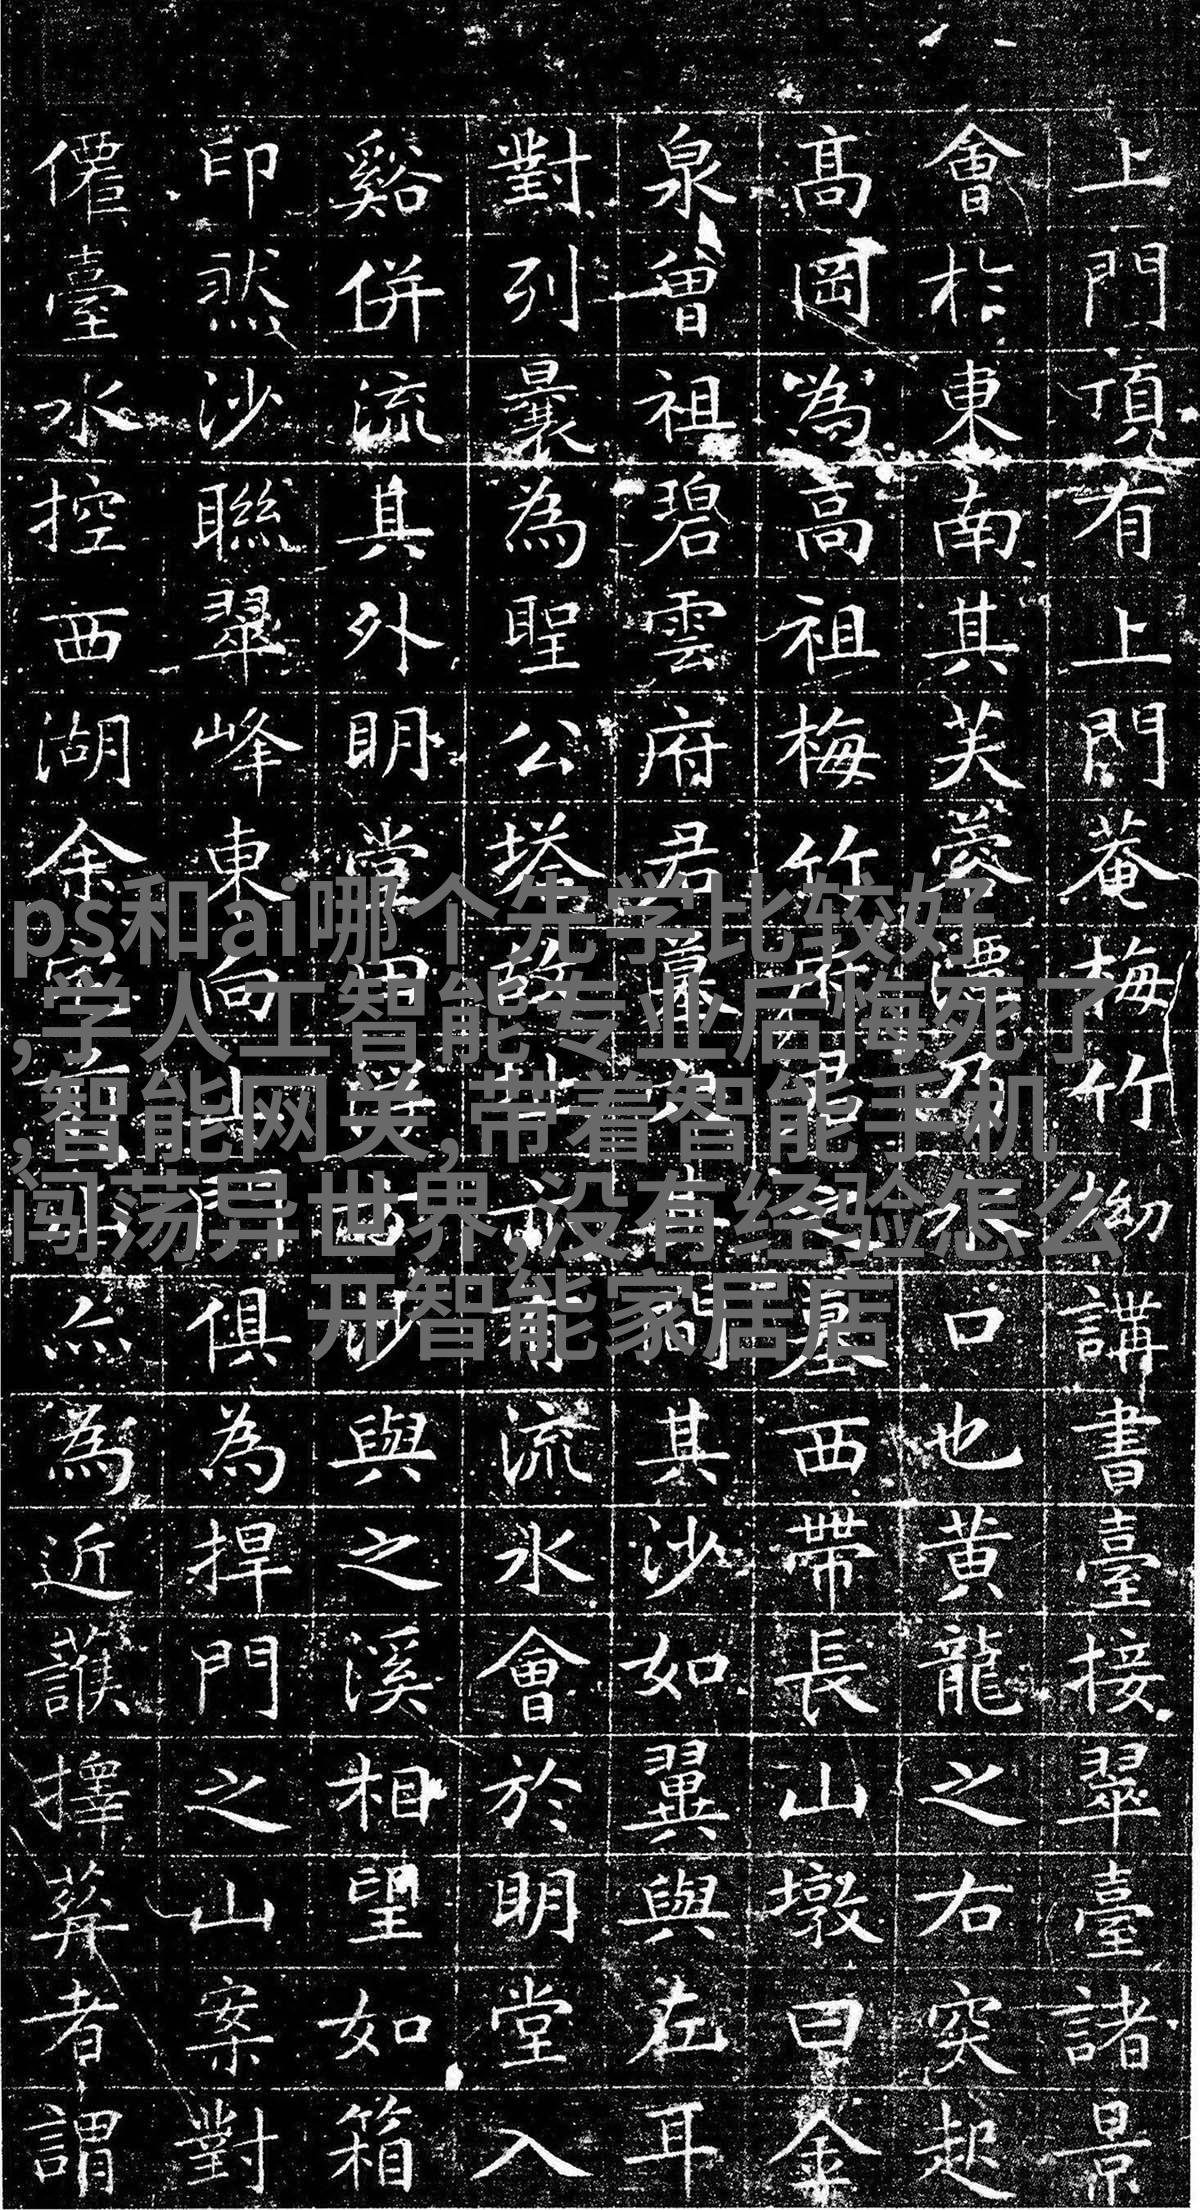 上門頂有上門菴梅竹㓜講書臺接翠臺諸景
會於東南其芙蓉潭口也黃龍之右突起
髙岡為高祖梅竹墓西帶長山墩曰金
泉曾祖碧雲府君墓間其沙如翼與左耳
對列曩為聖公塔流水會於明堂入
谿併流其外明堂田沙與之溪相望如箱
印然沙聯翠峰東向上俱為捍門之山案對
僊臺水控西湖余為近擇葬者謂
ps和ai哪个先学比较好
,学人工智能专业后悔死了
,智能网关,带着智能手机
闯荡异世界,没有经验怎么
开智能家居店